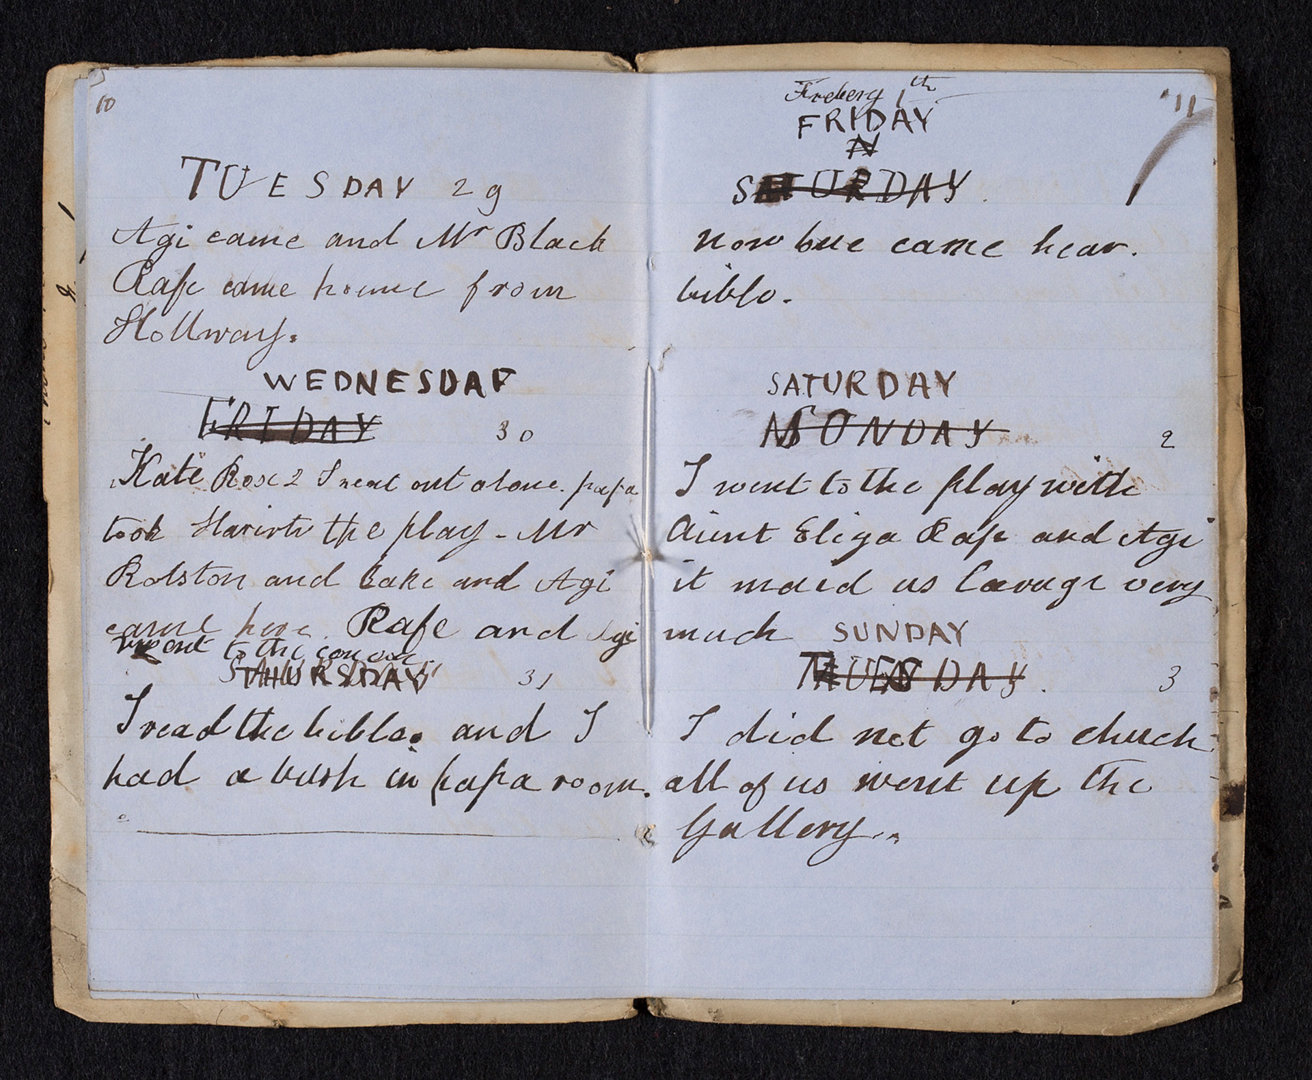 10
TUESDAY 29
Agi came and Mr Black
Rafe came home from
Hollway.
WEDNESDAY
FRIDAY 30
Kate Rose 2 I went out alone. papa
took to the play - Mr
Rolston and Lake and Agi
came here. Rafe and Agi
went to the
THURSDAY 31
I read the bible. and I
had a bath in papa room.
11
Frebery 1th
FRIDAY
N
SATURDAY
now bue came hear.
biblo.
SATURDAY
MONDAY 2
I went to the play with
Aunt Eliza Rafe and Agi
it maid us lavuge very
much SUNDAY
TUESDAY. 3
I did not go to chuch
all of us went up the
Gallery..